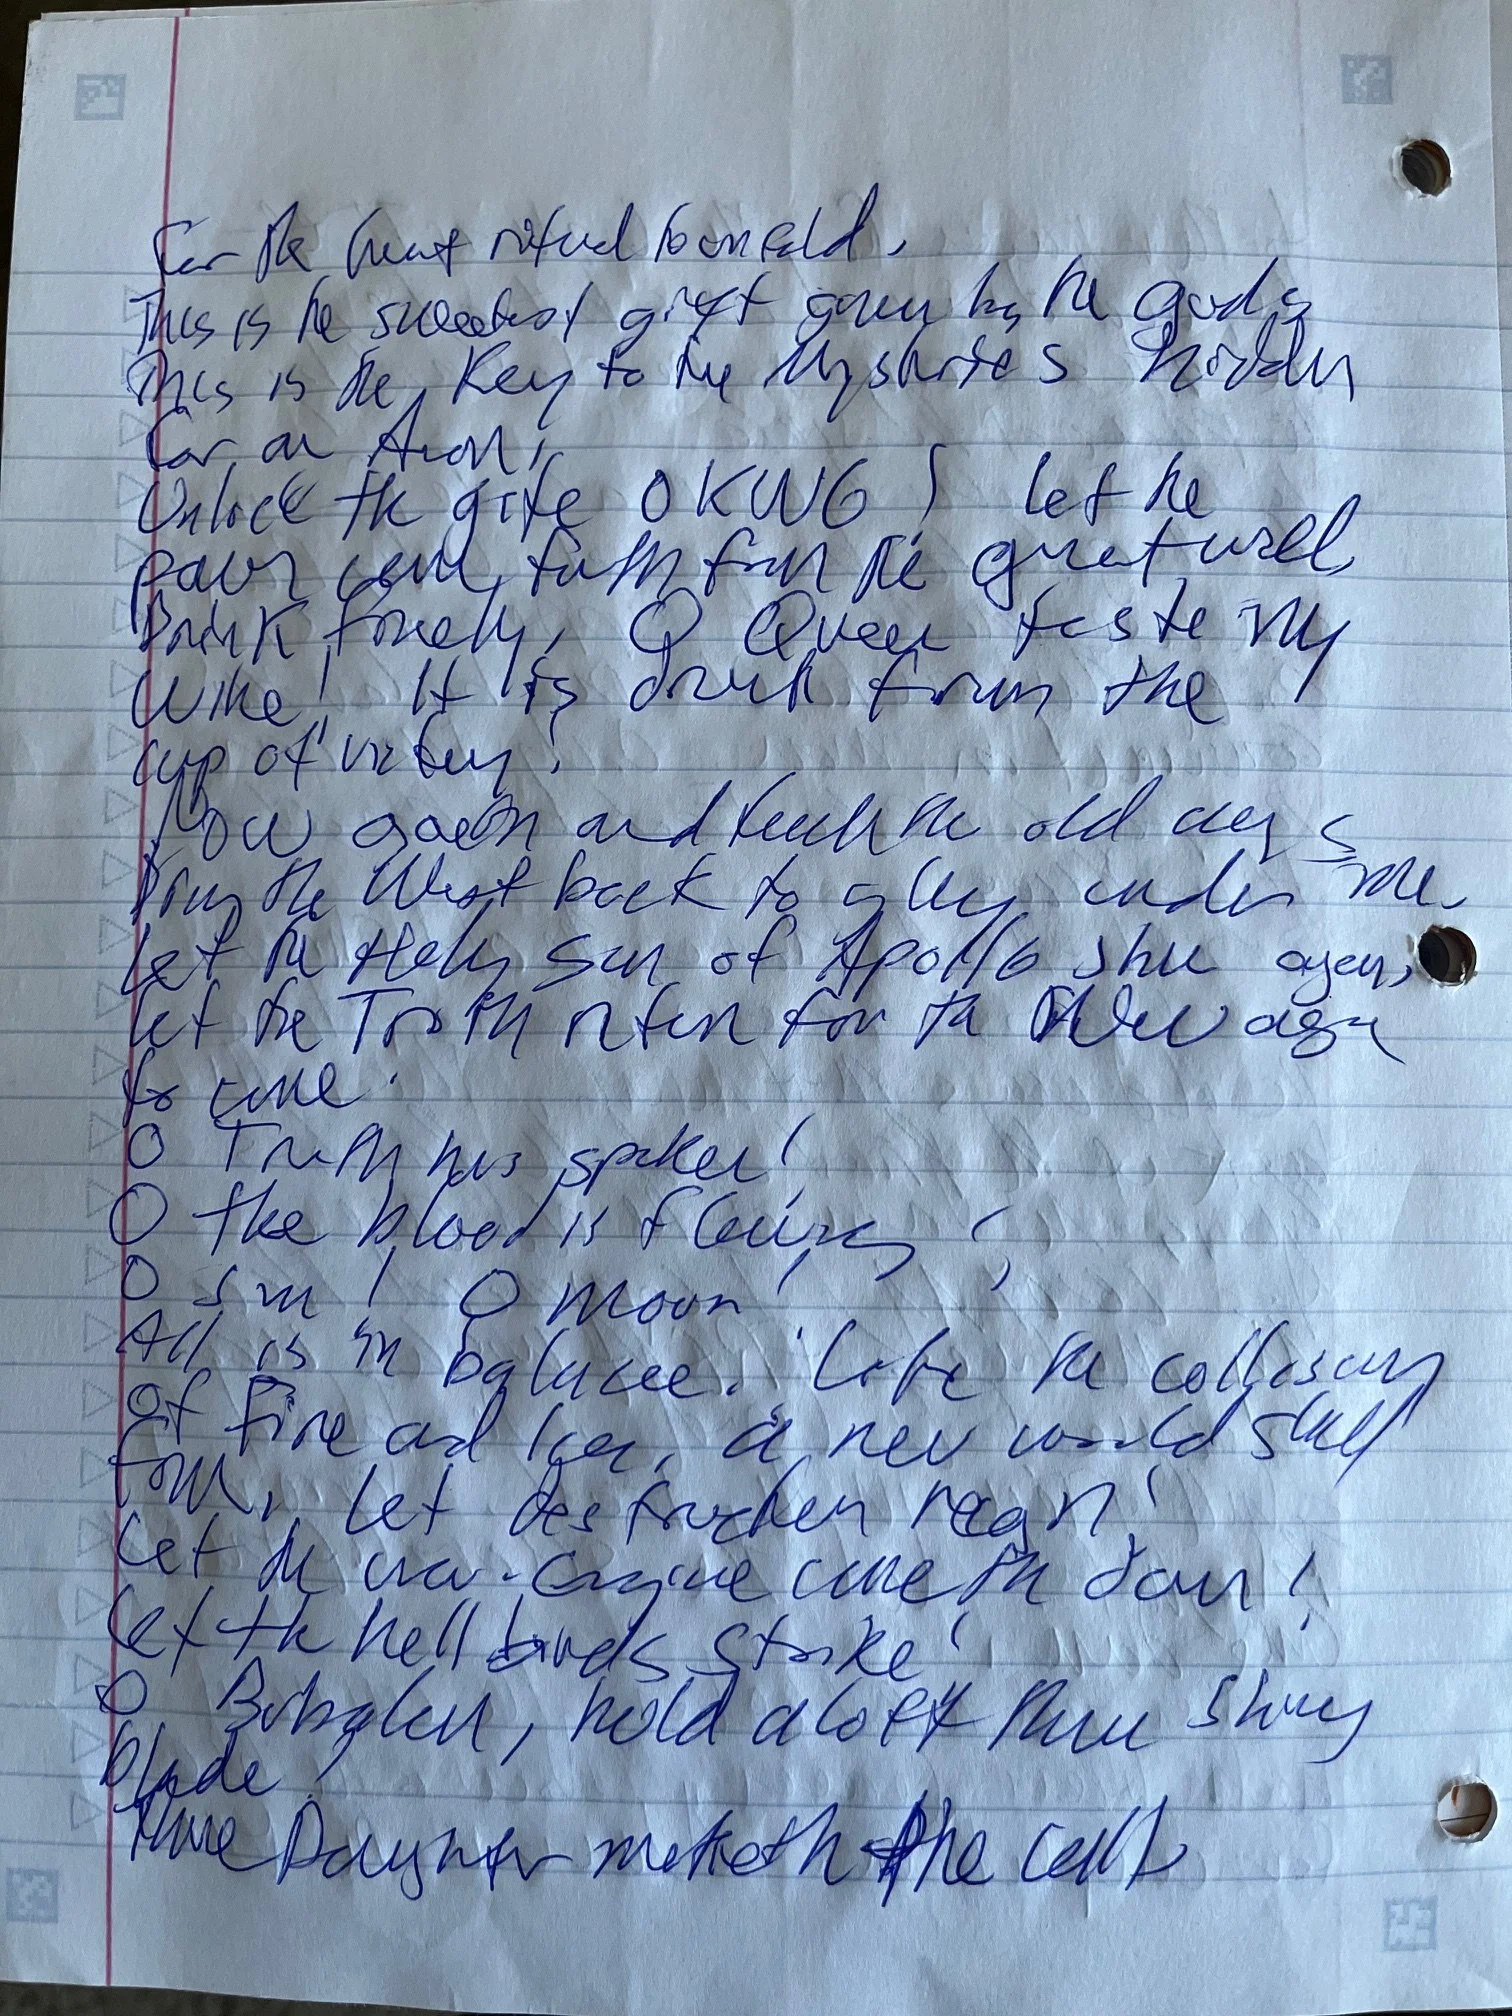 for the great ritual to unfold.
This is the sweetest gift given by the gods
This is the Key to the Mysteries hidden
for an Aeon,
Unlock the gate O KING! let the
power come forth from the great well
Drink freely, O Queen taste my
wine! It is drunk from the
cup of victory!
Now go on and teach the old ways
Bring the West back to glory under me.
let the Holy Sun of Apollo shine again,
let the Truth return for the New age
to come.
O Truth has spoken!
O the blood is flowing!
O sun! O moon!
All is in balance. like the collision
of Fire and Ice, a new world shall
form, let destruction reign!
let the war-engine come th down!
let the hell birds strike!
O Babalon, hold aloft thine shiny
blade!
Thine Daughter maketh the call